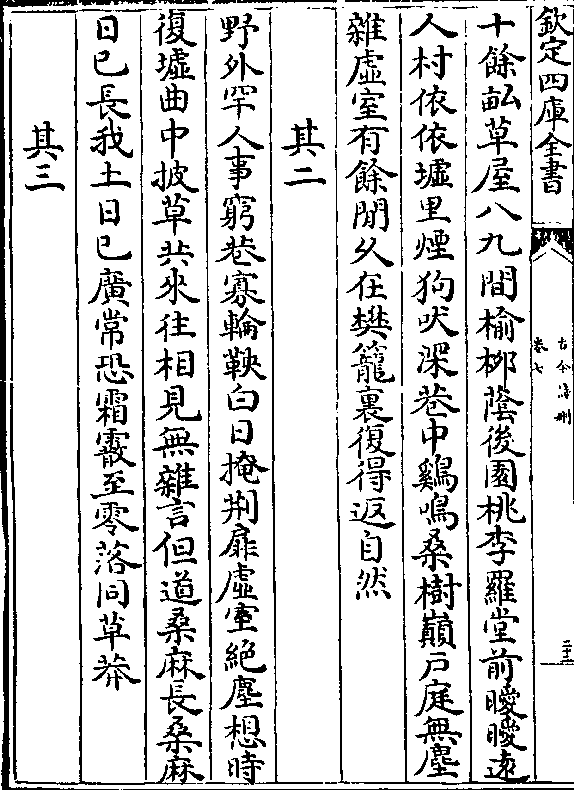 欽定四庫全書
古今詩刪
卷七
十餘畆草屋八九間榆栁蔭後園桃李羅堂前曖曖逺
人村依依墟里煙狗吠深巷中鷄鳴桑樹巔戸庭無塵
雜虛室有餘閒乆在樊籠裏復得返自然
其二
野外罕人事窮巷寡輪鞅白日掩荆扉虛室絶塵想時
復墟曲中披草共來往相見無雜言但道桑麻長桑麻
日已長我土日已廣常恐霜霰至零落同草莽
其三